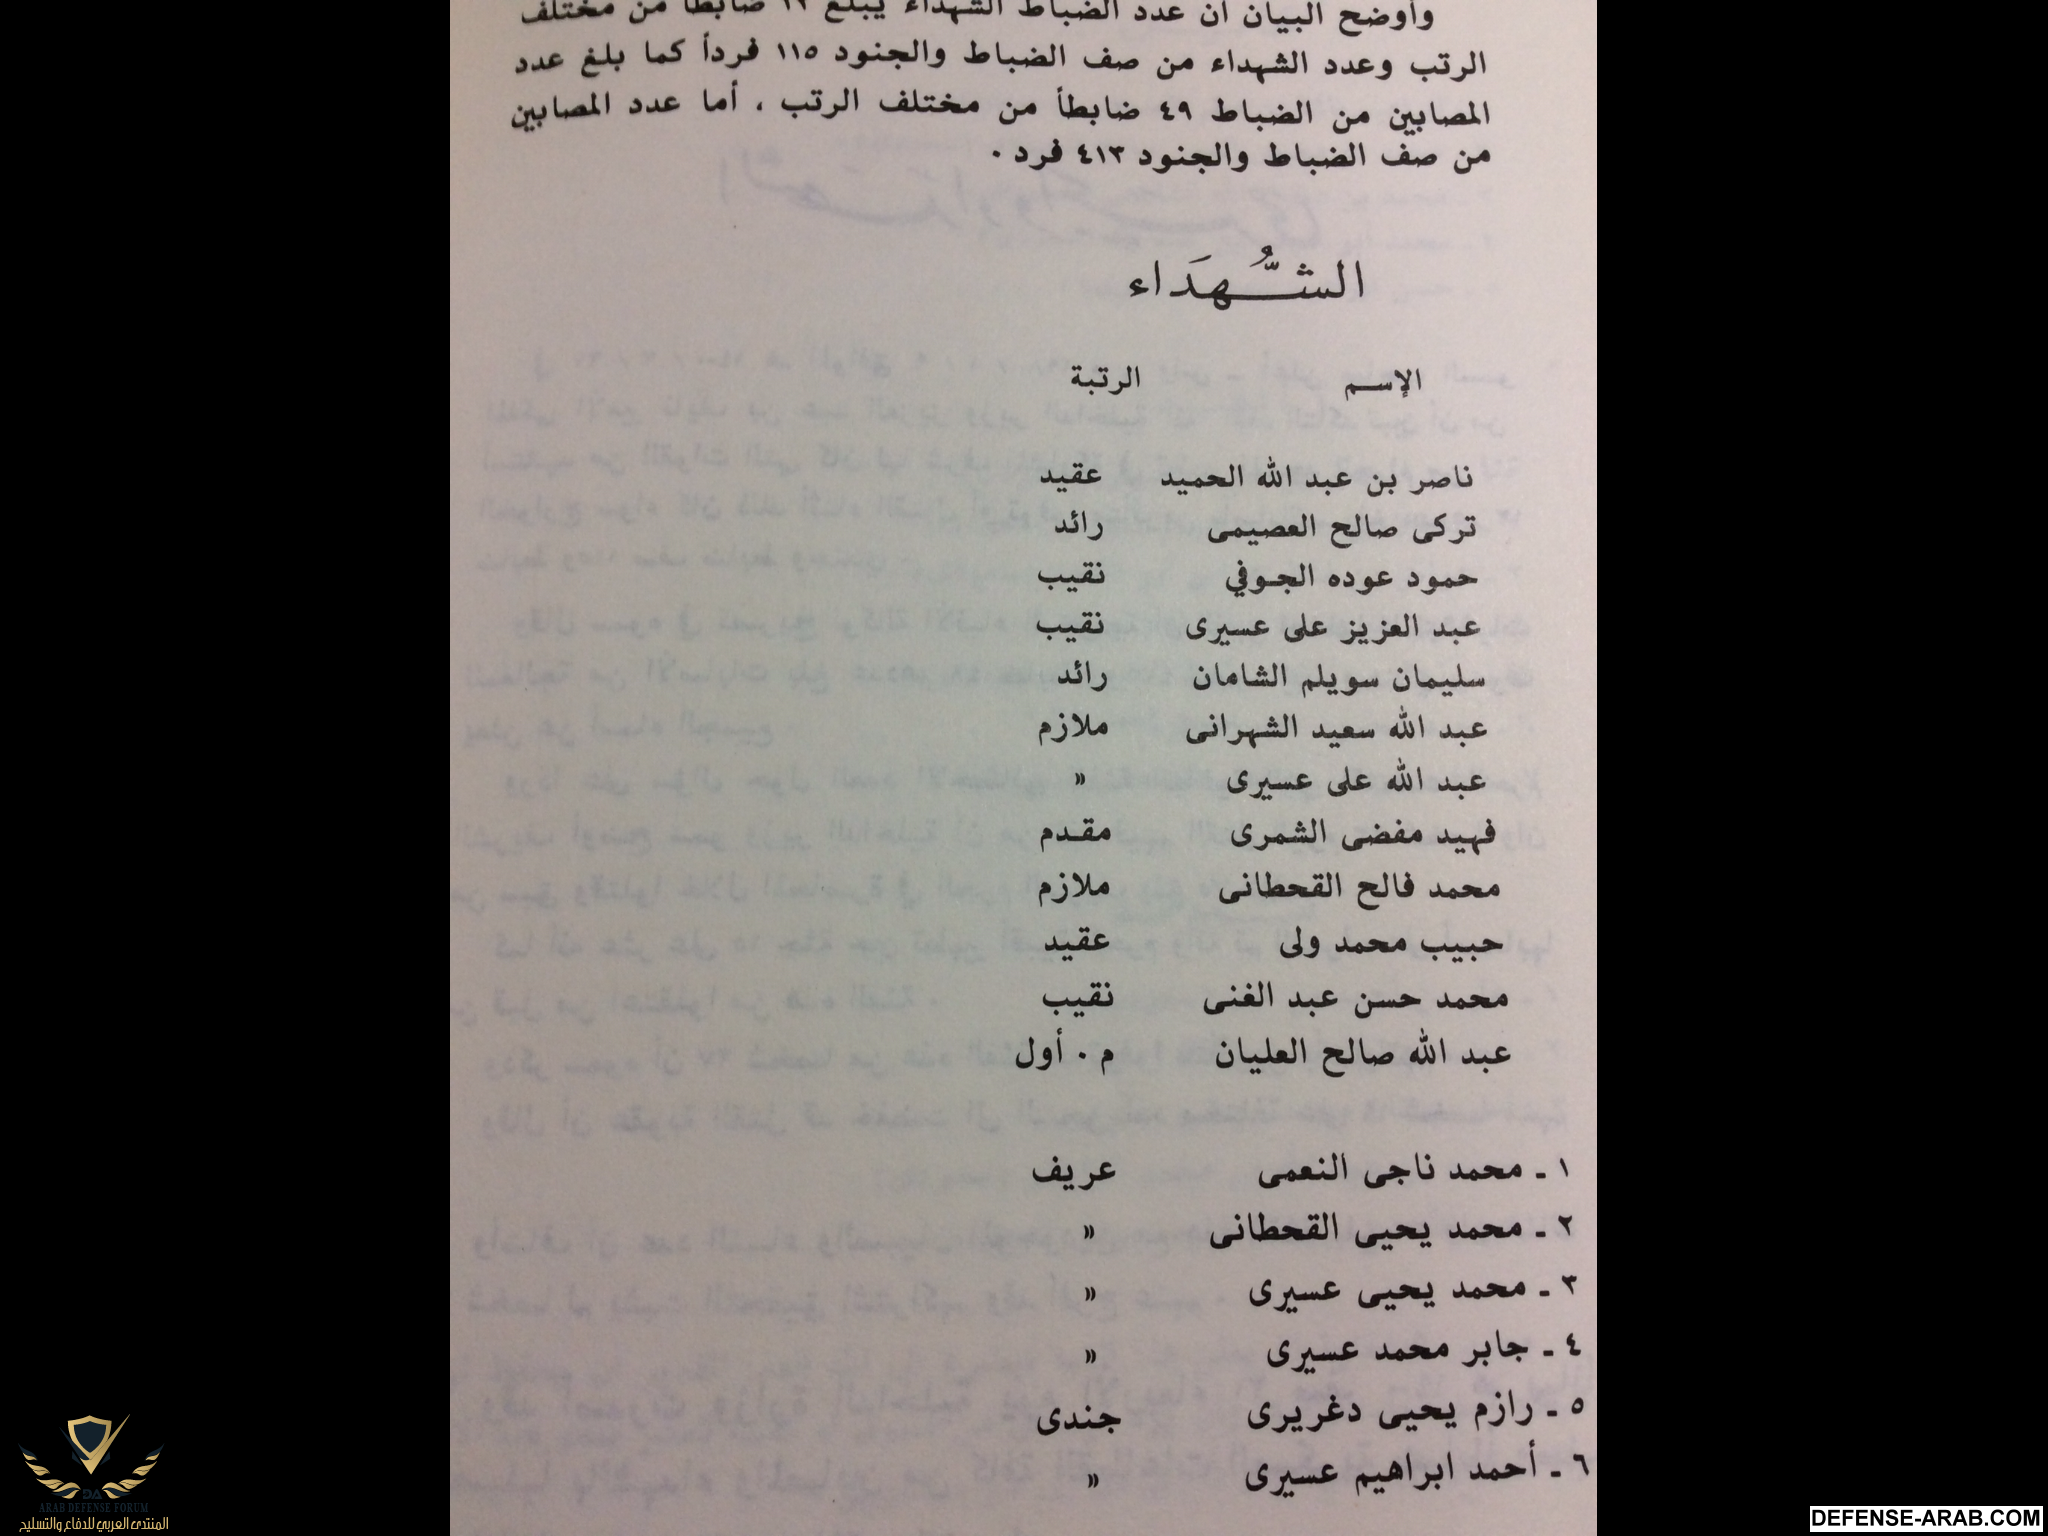 وأوضح البيان أن عدد الضباط الشهداء يبلغ ١٢ ضابطاً من مختلف
الرتب وعدد الشهداء من صف الضباط والجنود ١١٥ فرداً كما بلغ عدد
المصابين من الضباط ٤٩ ضابطاً من مختلف الرتب ، أما عدد المصابين
من صف الضباط والجنود ٤١٣ فرد .
الشُّهَدَاء
الإسم الرتبة
ناصر بن عبد الله الحميد عقيد
تركى صالح العصيمى رائد
حمود عوده الجوفي نقيب
عبد العزيز على عسيرى نقيب
سليمان سويلم الشامان رائد
عبد الله سعيد الشهرانى ملازم
عبد الله على عسيرى »
فهيد مفضى الشمرى مقدم
محمد فالح القحطانى ملازم
حبيب محمد ولى عقيد
محمد حسن عبد الغنى نقيب
عبد الله صالح العليان م . أول
١ ـ محمد ناجى النعمى عريف
٢ ـ محمد يحيى القحطانى »
٣ ـ محمد يحيى عسيرى »
٤ ـ جابر محمد عسيرى »
٥ ـ رازم يحيى دغريرى جندى
٦ ـ أحمد ابراهيم عسيرى »
DA
ARAB DEFENSE FORUM
المنتدى العربي للدفاع والتسليح
DEFENSE-ARAB.COM